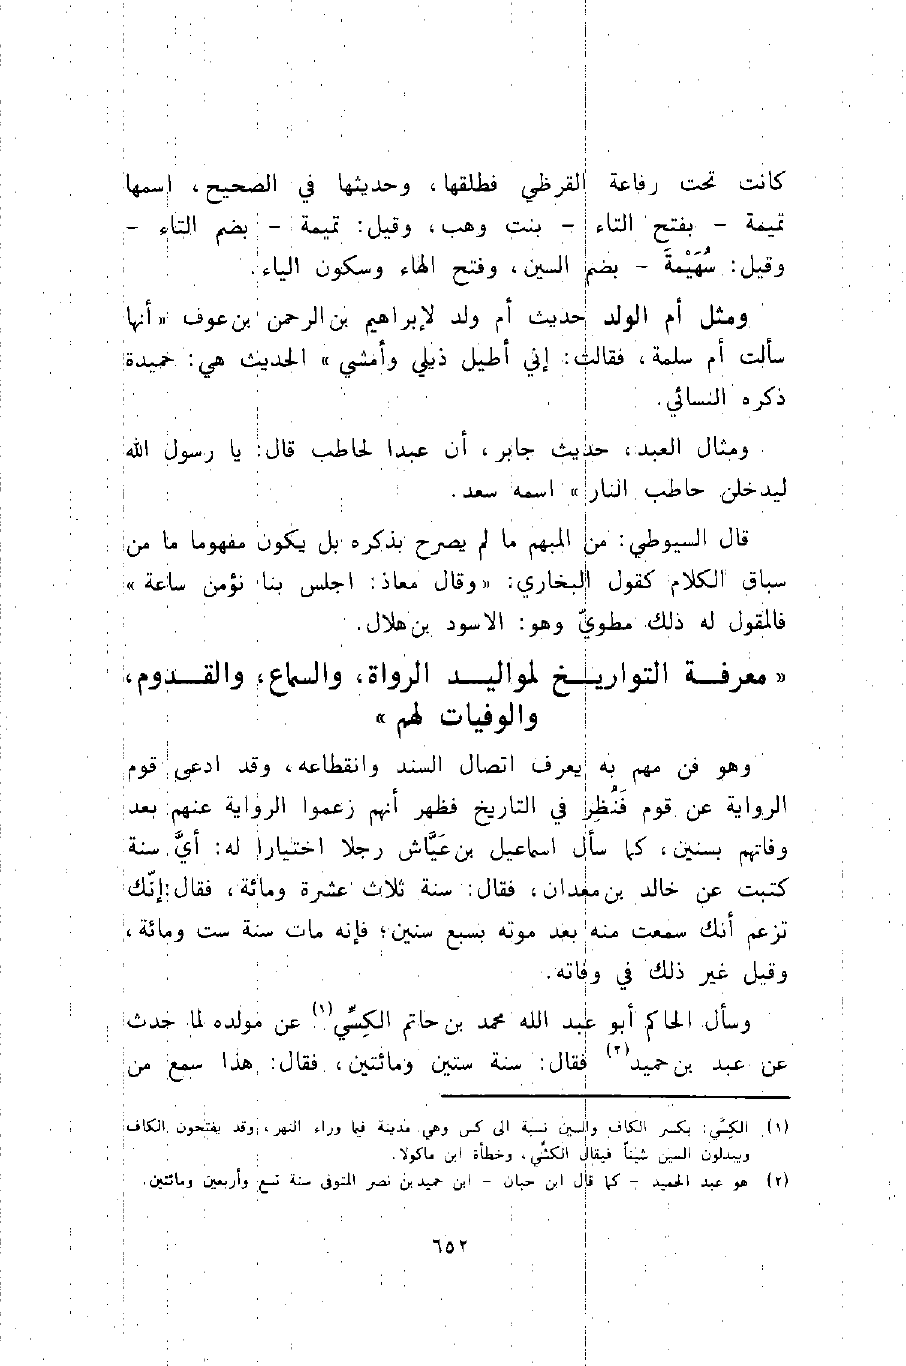 كانت تحت رفاعة القرظي فطلقها، وحديثها في الصحيح، اسمها
تميمة - بفتح التاء - بنت وهب، وقيل: تميمة - بضم التاء -
وقيل: سُهَيْمَةَ - بضم السين، وفتح الهاء وسكون الياء.
ومثل أم الولد حديث أم ولد لإبراهيم بن الرحمن بن عوف «أنها
سألت أم سلمة، فقالت: إني أطيل ذيلي وأمشي» الحديث هي: حميدة
ذكره النسائي.
ومثال العبد، حديث جابر، أن عبدا لحاطب قال: يا رسول الله
ليدخلن حاطب النار» اسمه سعد.
قال السيوطي: من المبهم ما لم يصرح بذكره بل يكون مفهوما ما من
سباق الكلام كقول البخاري: «وقال معاذ: اجلس بنا نؤمن ساعة»
فالمقول له ذلك مطويّ وهو: الاسود بن هلال.
«معرفة التواريخ لمواليد الرواة، والسماع، والقدوم،
والوفيات لهم»
وهو فن مهم به يعرف اتصال السند وانقطاعه، وقد ادعى قوم
الرواية عن قوم فَنُظِرَ في التاريخ فظهر أنهم زعموا الرواية عنهم بعد
وفاتهم بسنين، كما سأل اسماعيل بن عَيَّاش رجلا اختيارا له: أيَّ سنة
كتبت عن خالد بن معدان، فقال: سنة ثلاث عشرة ومائة، فقال: إنّك
تزعم أنك سمعت منه بعد موته بسبع سنين؛ فإنه مات سنة ست ومائة،
وقيل غير ذلك في وفاته.
وسأل الحاكم أبو عبد الله محمد بن حاتم الكِسِّي (١) عن مولده لما حدث
عن عبد بن حميد (٢) فقال: سنة ستين ومائتين، فقال: هذا سمع من
(١) الكِسِّي: بكسر الكاف والسين نسبة الى كس وهي مدينة فيما وراء النهر، وقد يفتحون الكاف
ويبدلون السين شيناً فيقال الكشِّي، وخطأة ابن ماكولا.
(٢) هو عبد الحميد - كما قال ابن حبان - ابن حميد بن نصر المتوفى سنة تسع وأربعين ومائتين.
٦٥٢